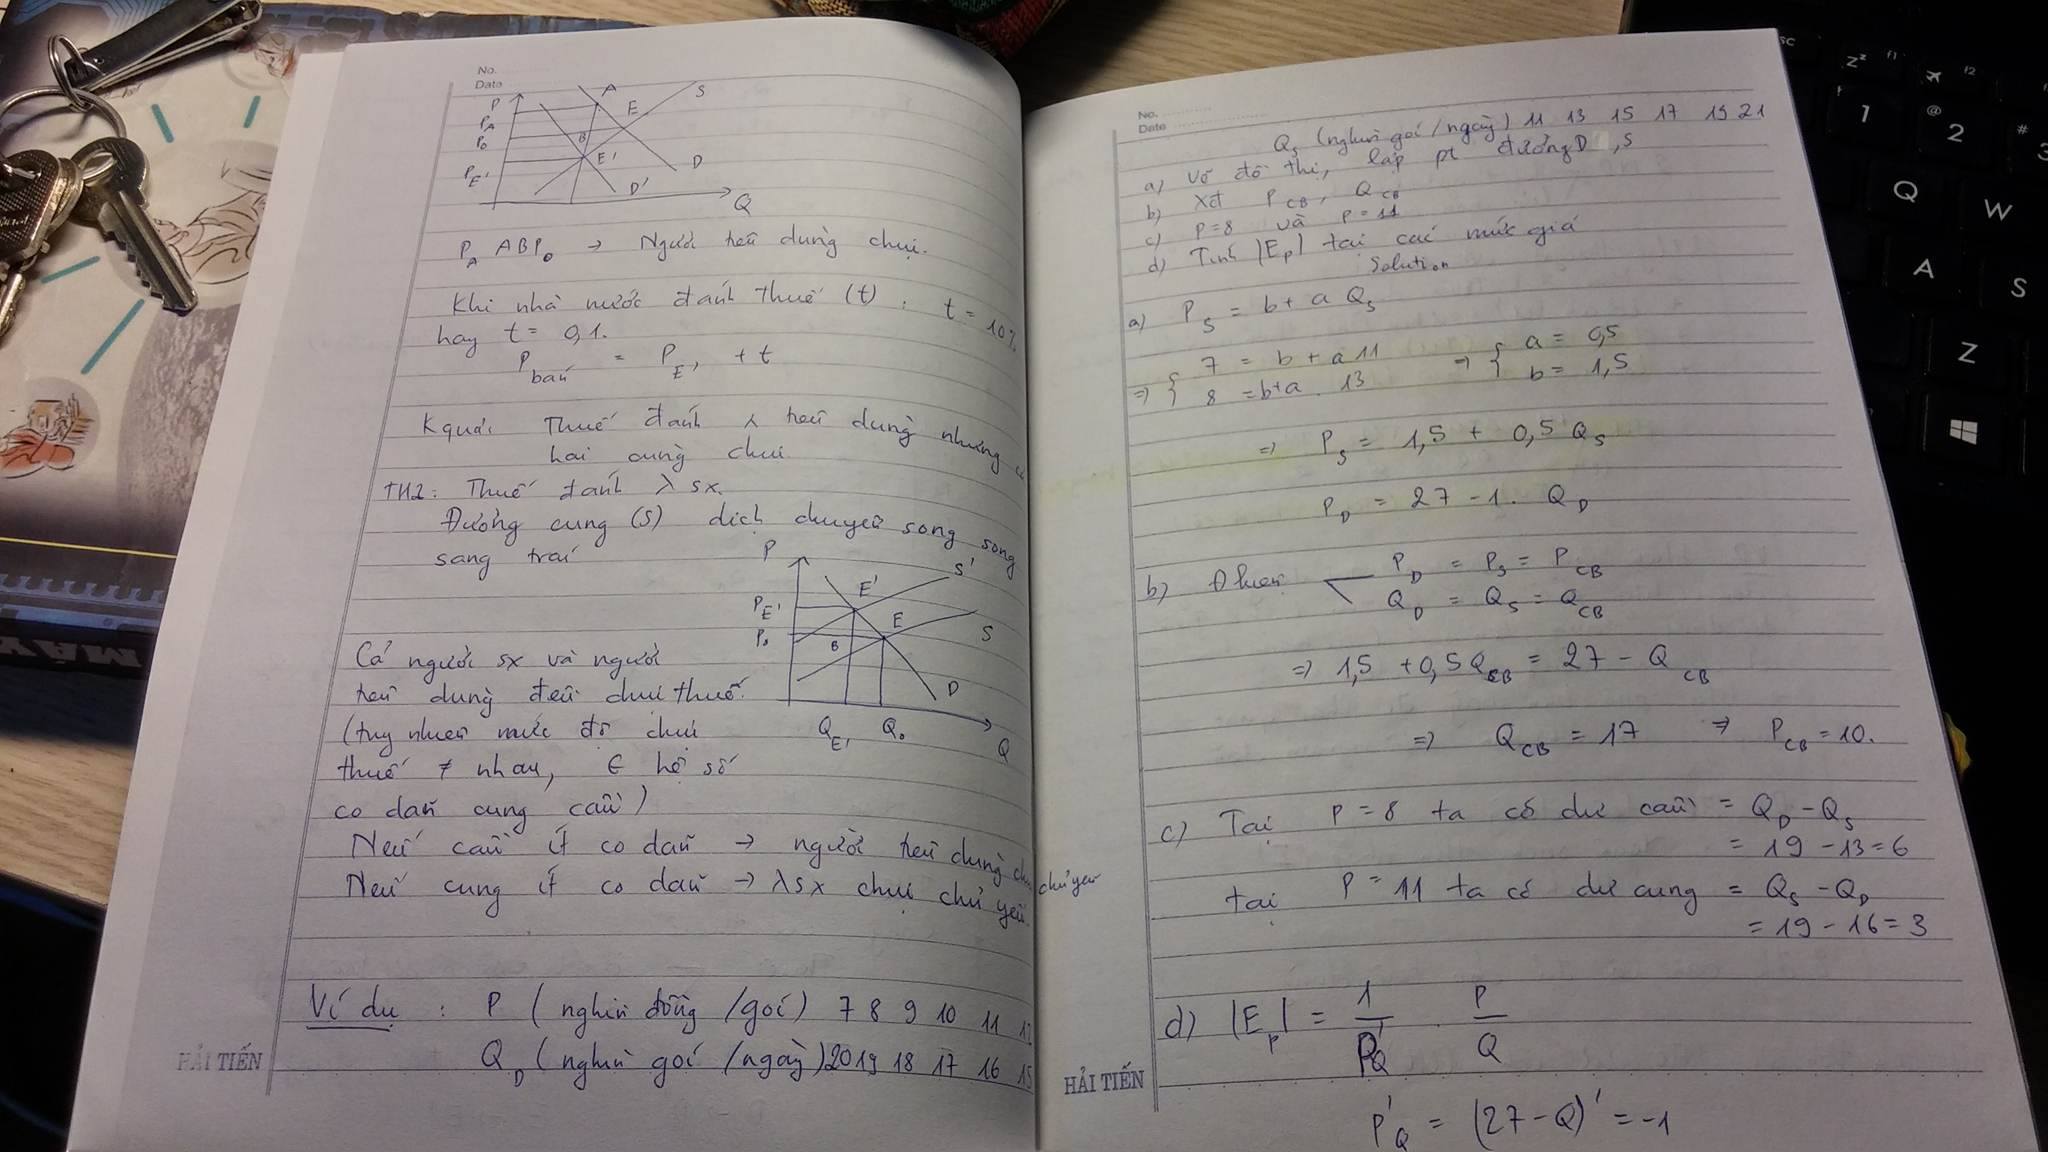 No.
Date
P
A
S
P_A
E
P_0
B
E'
P_E'
D
D'
Q
P_A ABP_0 → Người tiêu dùng chịu.
Khi nhà nước đánh thuế (t) : t = 10%
hay t = 0,1.
P_bán = P_E' + t
K quả: Thuế đánh λ tiêu dùng nhưng cả
hai cùng chịu
TH2: Thuế đánh λ sx.
Đường cung (S) dịch chuyển song song
sang trái
P
S'
E'
P_E'
E
P_0
S
B
D
Q_E' Q_0
Q
Cả người sx và người
tiêu dùng đều chịu thuế.
(tuy nhiên mức độ chịu
thuế ≠ nhau, ∈ hệ số
co dãn cung cầu)
Nếu cầu ít co dãn → người tiêu dùng chịu chủ yếu
Nếu cung ít co dãn → λ sx chịu chủ yếu.
Ví dụ : P (nghìn đồng /gói) 7 8 9 10 11 12
Q_D (nghìn gói /ngày) 20 19 18 17 16 15
HẢI TIẾN
No.
Date
Q_S (nghìn gói /ngày) 11 13 15 17 19 21
a) Vẽ đồ thị, lập pt đường D, S
b) Xđ P_CB, Q_CB
c) P=8 và P=11
d) Tính |E_P| tại các mức giá
Solution
a) P_S = b + a Q_S
=> { 7 = b + a 11 => { a = 0,5
8 = b+a . 13 b = 1,5
=> P_S = 1,5 + 0,5 Q_S
P_D = 27 - 1. Q_D
b) Đkiện P_D = P_S = P_CB
Q_D = Q_S = Q_CB
=> 1,5 + 0,5Q_CB = 27 - Q_CB
=> Q_CB = 17 => P_CB = 10.
c) Tại P = 8 ta có dư cầu = Q_D - Q_S
= 19 - 13 = 6
tại P = 11 ta có dư cung = Q_S - Q_D
= 19 - 16 = 3
d) |E_P| = 1/P'_Q . P/Q
P'_Q = (27 - Q)' = -1
HẢI TIẾN
1
@
2
#
3
Q
W
A
S
Z